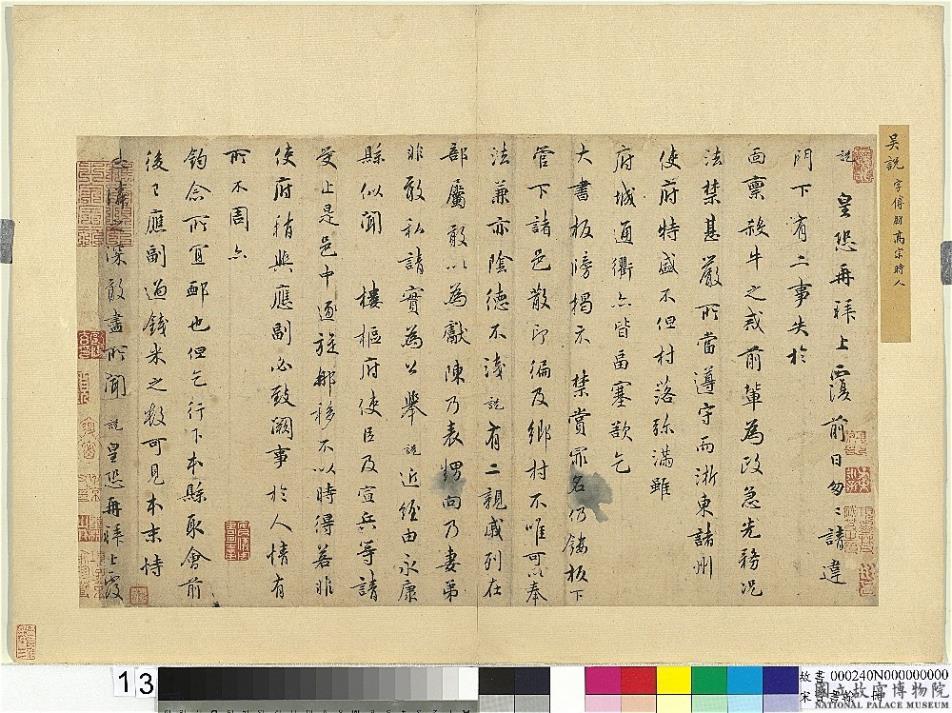 吳說 字傅朋 高宗時人
說 皇恐再拜上覆前日匆匆請違
門下有二事失於
面稟殺牛之戒前輩為政急先務况
法禁甚嚴所當遵守而浙東諸州
使府特盛不但村落弥滿雖
府城通衢亦皆畐塞欲乞
大書板牓揭示 禁賞罪名仍鏤板下
管下諸邑散印徧及鄉村不唯可以奉
法兼亦陰德不淺說有二親戚列在
部屬敢以為獻陳乃表愕向乃妻弟
非敢私請實為公舉說近經由永康
縣似聞 樓樞府使臣及宣兵等請
受止是邑中逐旋那移不以時得若非
使府稍與應副必致闕事於人情有
所不周亦
鈞念所宜郵也但乞行下本縣取會前
後已應副過錢米之數可見本末恃
深敢盡所聞 說皇恐再拜上覆
13
故書000240N000000000
國立故宮博物院
NATIONAL PALACE MUSEUM